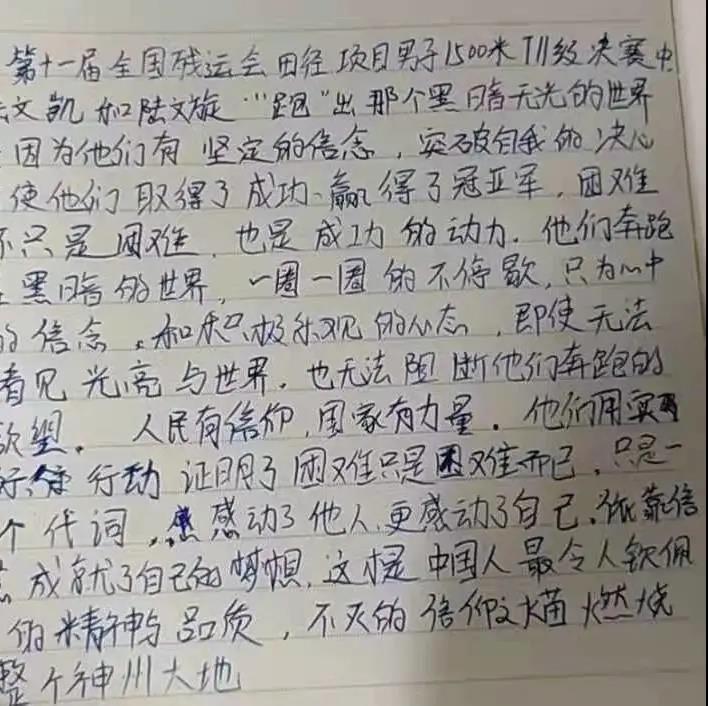 第十一届全国残运会田径项目男子1500米T11级决赛中
文凯和陆文旋“跑”出那个黑暗无光的世界
因为他们有坚定的信念，突破自我的决心
使他们取得了成功、赢得了冠亚军，困难
不只是困难，也是成功的动力．他们奔跑
黑暗的世界，一圈一圈的不停歇，只为心中
的信念，和积极乐观的心态，即使无法
看见光亮与世界．也无法阻断他们奔跑的
欲望．人民有信仰，国家有力量．他们用实
行动证明了困难只是困难而已，只是一
个代词，感动了他人，更感动了自己．依靠信
成就了自己的梦想，这才是中国人最令人钦佩
的精神与品质，不灭的信仰之苗燃烧
整个神州大地